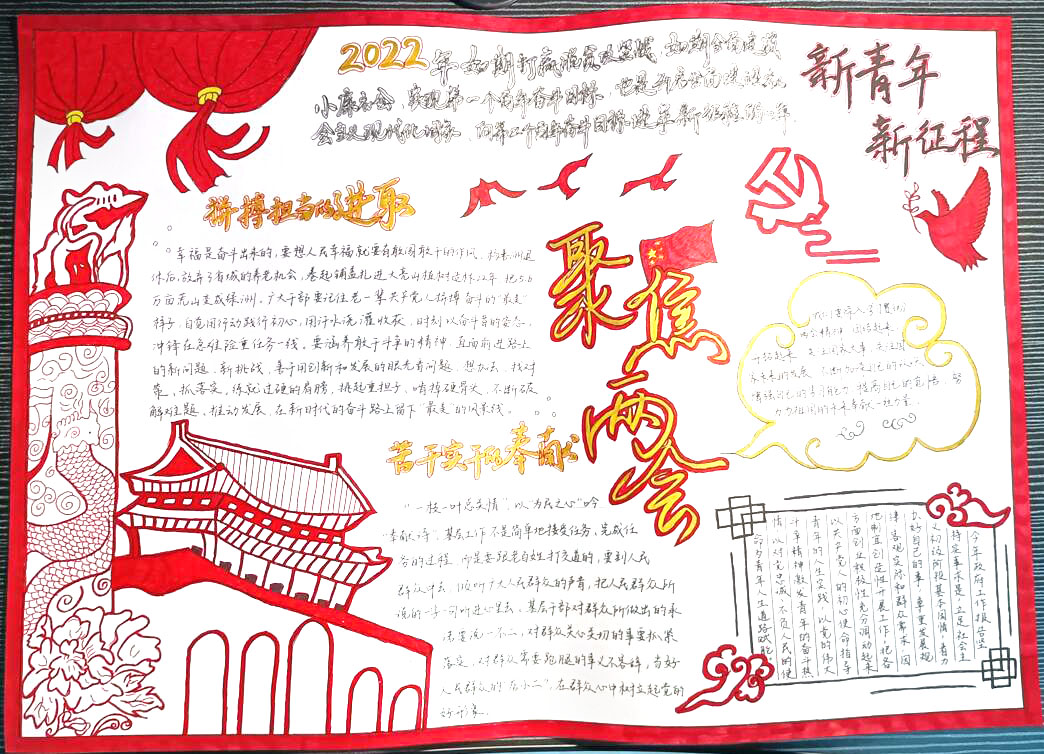 2022年 如期打赢脱贫攻坚战 如期全面建成
小康社会，实现第一个百年奋斗目标，也是开启全面建设社
会主义现代化国家，向第二个百年奋斗目标进军新征程的一年
新青年
新征程
拼搏担当的进取
幸福是奋斗出来的，要想人民幸福就要有敢闯敢干的作风。
休后，放弃了省城的养老机会，卷起铺盖扎进大亮山植树造林22年 把5.6
万亩荒山变成绿洲。广大干部要记住老一辈共产党人拼搏奋斗的“最美”
样子，自觉用行动践行初心，用汗水浇灌收获，时刻以奋斗者的姿态，
冲锋在急难险重任务一线。要涵养敢于斗争的精神，直面前进路上
的新问题、新挑战，善于用创新和发展的眼光看问题、想办法、找对
策、抓落实，练就过硬的肩膀，挑起重担子，啃掉硬骨头，不断破
解难题，推动发展，在新时代的奋斗路上留下“最美”的风景线。
聚焦
两会
苦干实干的奉献
“一枝一叶总关情”，以“为民之心”吟
奉献诗”。基层工作不是简单地接受任务、完成任
务的过程，而是要跟老百姓打交道的，要到人民
群众中去，倾听广大人民群众的声音，把人民群众所
说的一字一句听进心里去，基层干部对群众所做出的承
诺要说一不二，对群众关心关切的事要抓紧
落实，对群众需要跑腿的事义不容辞，当好
人民群众的“店小二”，在群众心中树立起党的
好形象。
我们要深入了
两会精神，团结起来
行动起来，关注国家大事，关注国
家未来的发展，不断加深自己的认识
增强自己的学习能力，提高自己的觉悟，努
力为祖国的未来奉献一份力量。
今年政府工作报告坚
持定事求是，立足社会主
义初级阶段基本国情，着力
办好自己的事，尊重发展规
律、客观实际和群众需求，因
地制宜创造性开展工作，把各
方面干事创业积极性充分调动起来
以共产党人的初心使命指导
青年的人生实践，以党的伟大
斗争精神激发青年的奋斗热
情，以对党忠诚、不负人民的使
命为青年人生道路赋能。